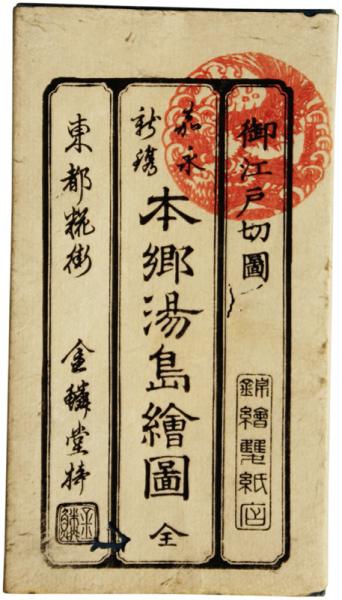 御江戸切圖
錦繪雙紙店
嘉永
新鐫
本鄉湯島繪圖 全
東都糀街 金鱗堂梓